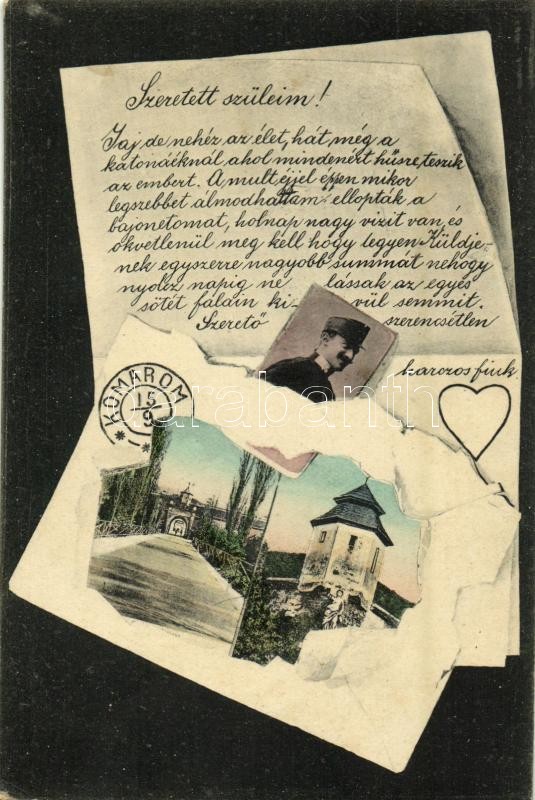 Szeretett szüleim!
Jaj de nehéz az élet, hát még a
katonáéknál ahol mindenért hűsre teszik
az embert. A mult éjjel eppen mikor
legszebbet álmodhattam ellopták a
bajonetomat, holnap nagy vizit van, és
okvetlenül meg kell hogy legyen. Küldje-
nek egyszerre nagyobb summát nehogy
nyolcz napig ne lássak az egyes
sötét falain ki- vül semmit.
Szerető szerencsétlen
karczos fiuk.
KOMÁROM
15
9
darabanth.com